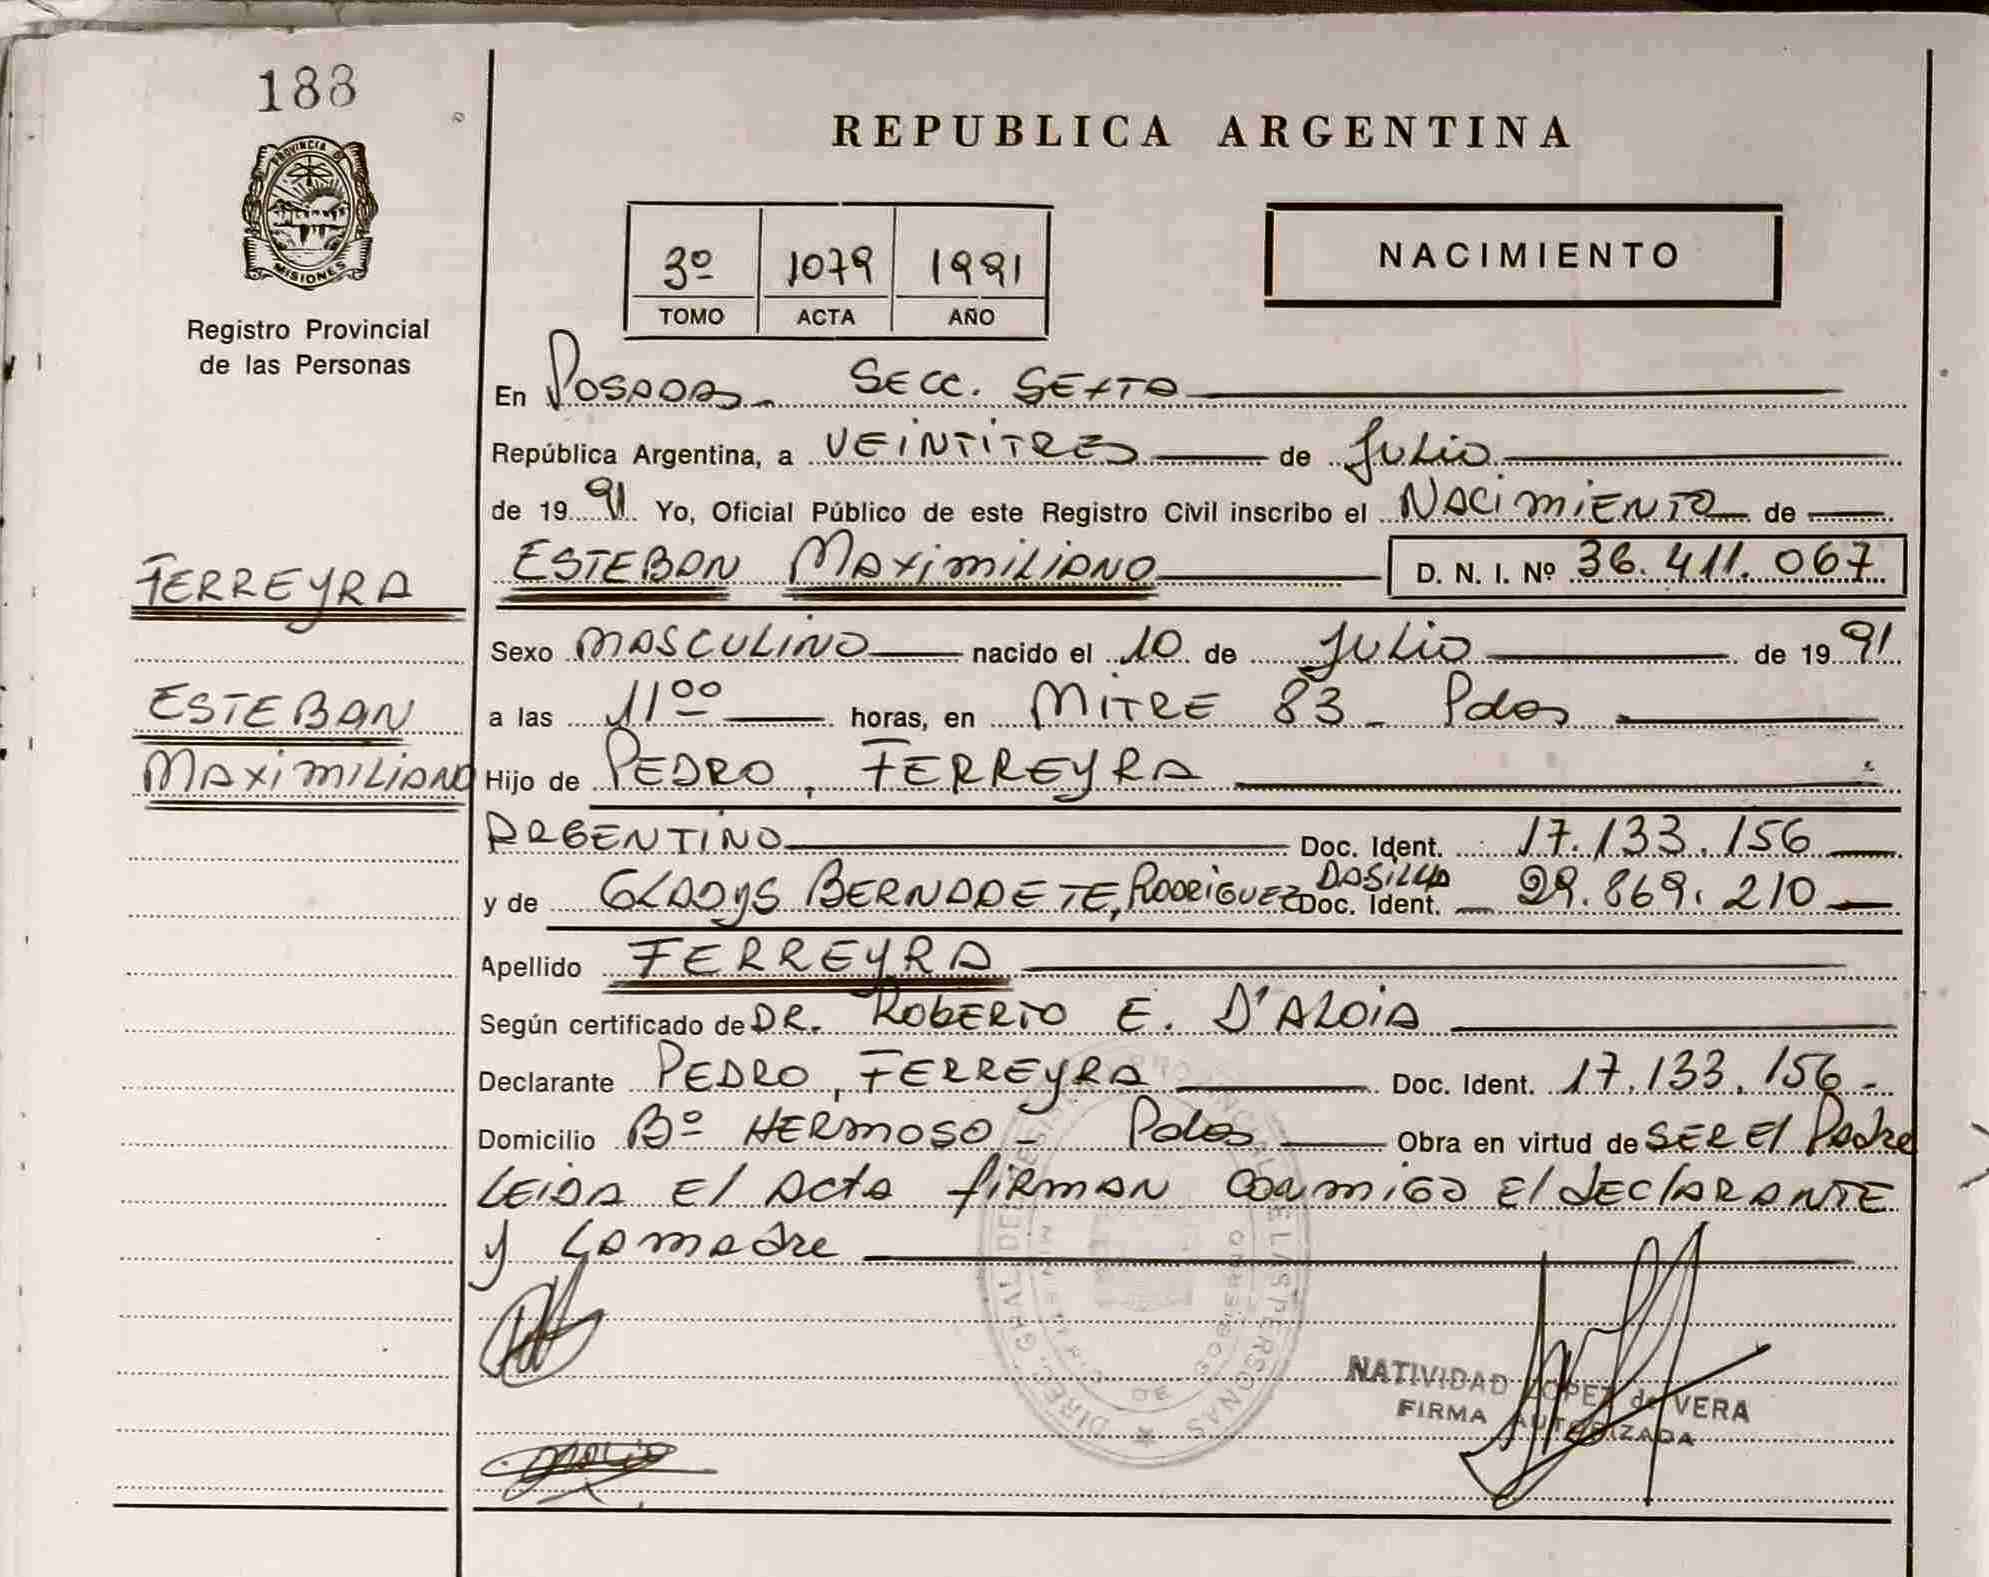 188
PROVINCIA DE
MISIONES
Registro Provincial
de las Personas
REPUBLICA ARGENTINA
3º 1079 1991
TOMO ACTA AÑO
NACIMIENTO
En Posadas Secc. Sexta
República Argentina, a VEINTITRES de Julio
de 1991 Yo, Oficial Público de este Registro Civil inscribo el NACIMIENTO de
FERREYRA
ESTEBAN MAXIMILIANO D. N. I. Nº 36.411.067
Sexo MASCULINO nacido el 10 de Julio de 1991
ESTEBAN
a las 11⁰⁰ horas, en MITRE 83 - Pdas
MAXIMILIANO
Hijo de PEDRO, FERREYRA
ARGENTINO Doc. Ident. 17.133.156
y de GLADYS BERNADETE, RODRIGUEZ DASILVA Doc. Ident. 29.869.210
Apellido FERREYRA
Según certificado de DR. ROBERTO E. D'ALOIA
Declarante PEDRO, FERREYRA Doc. Ident. 17.133.156-
Domicilio Bº HERMOSO - Pdas Obra en virtud de SER El Padre
LEIDA El Acta firman conmigo El declarante
y La madre
NATIVIDAD LOPEZ de VERA
FIRMA AUTORIZADA